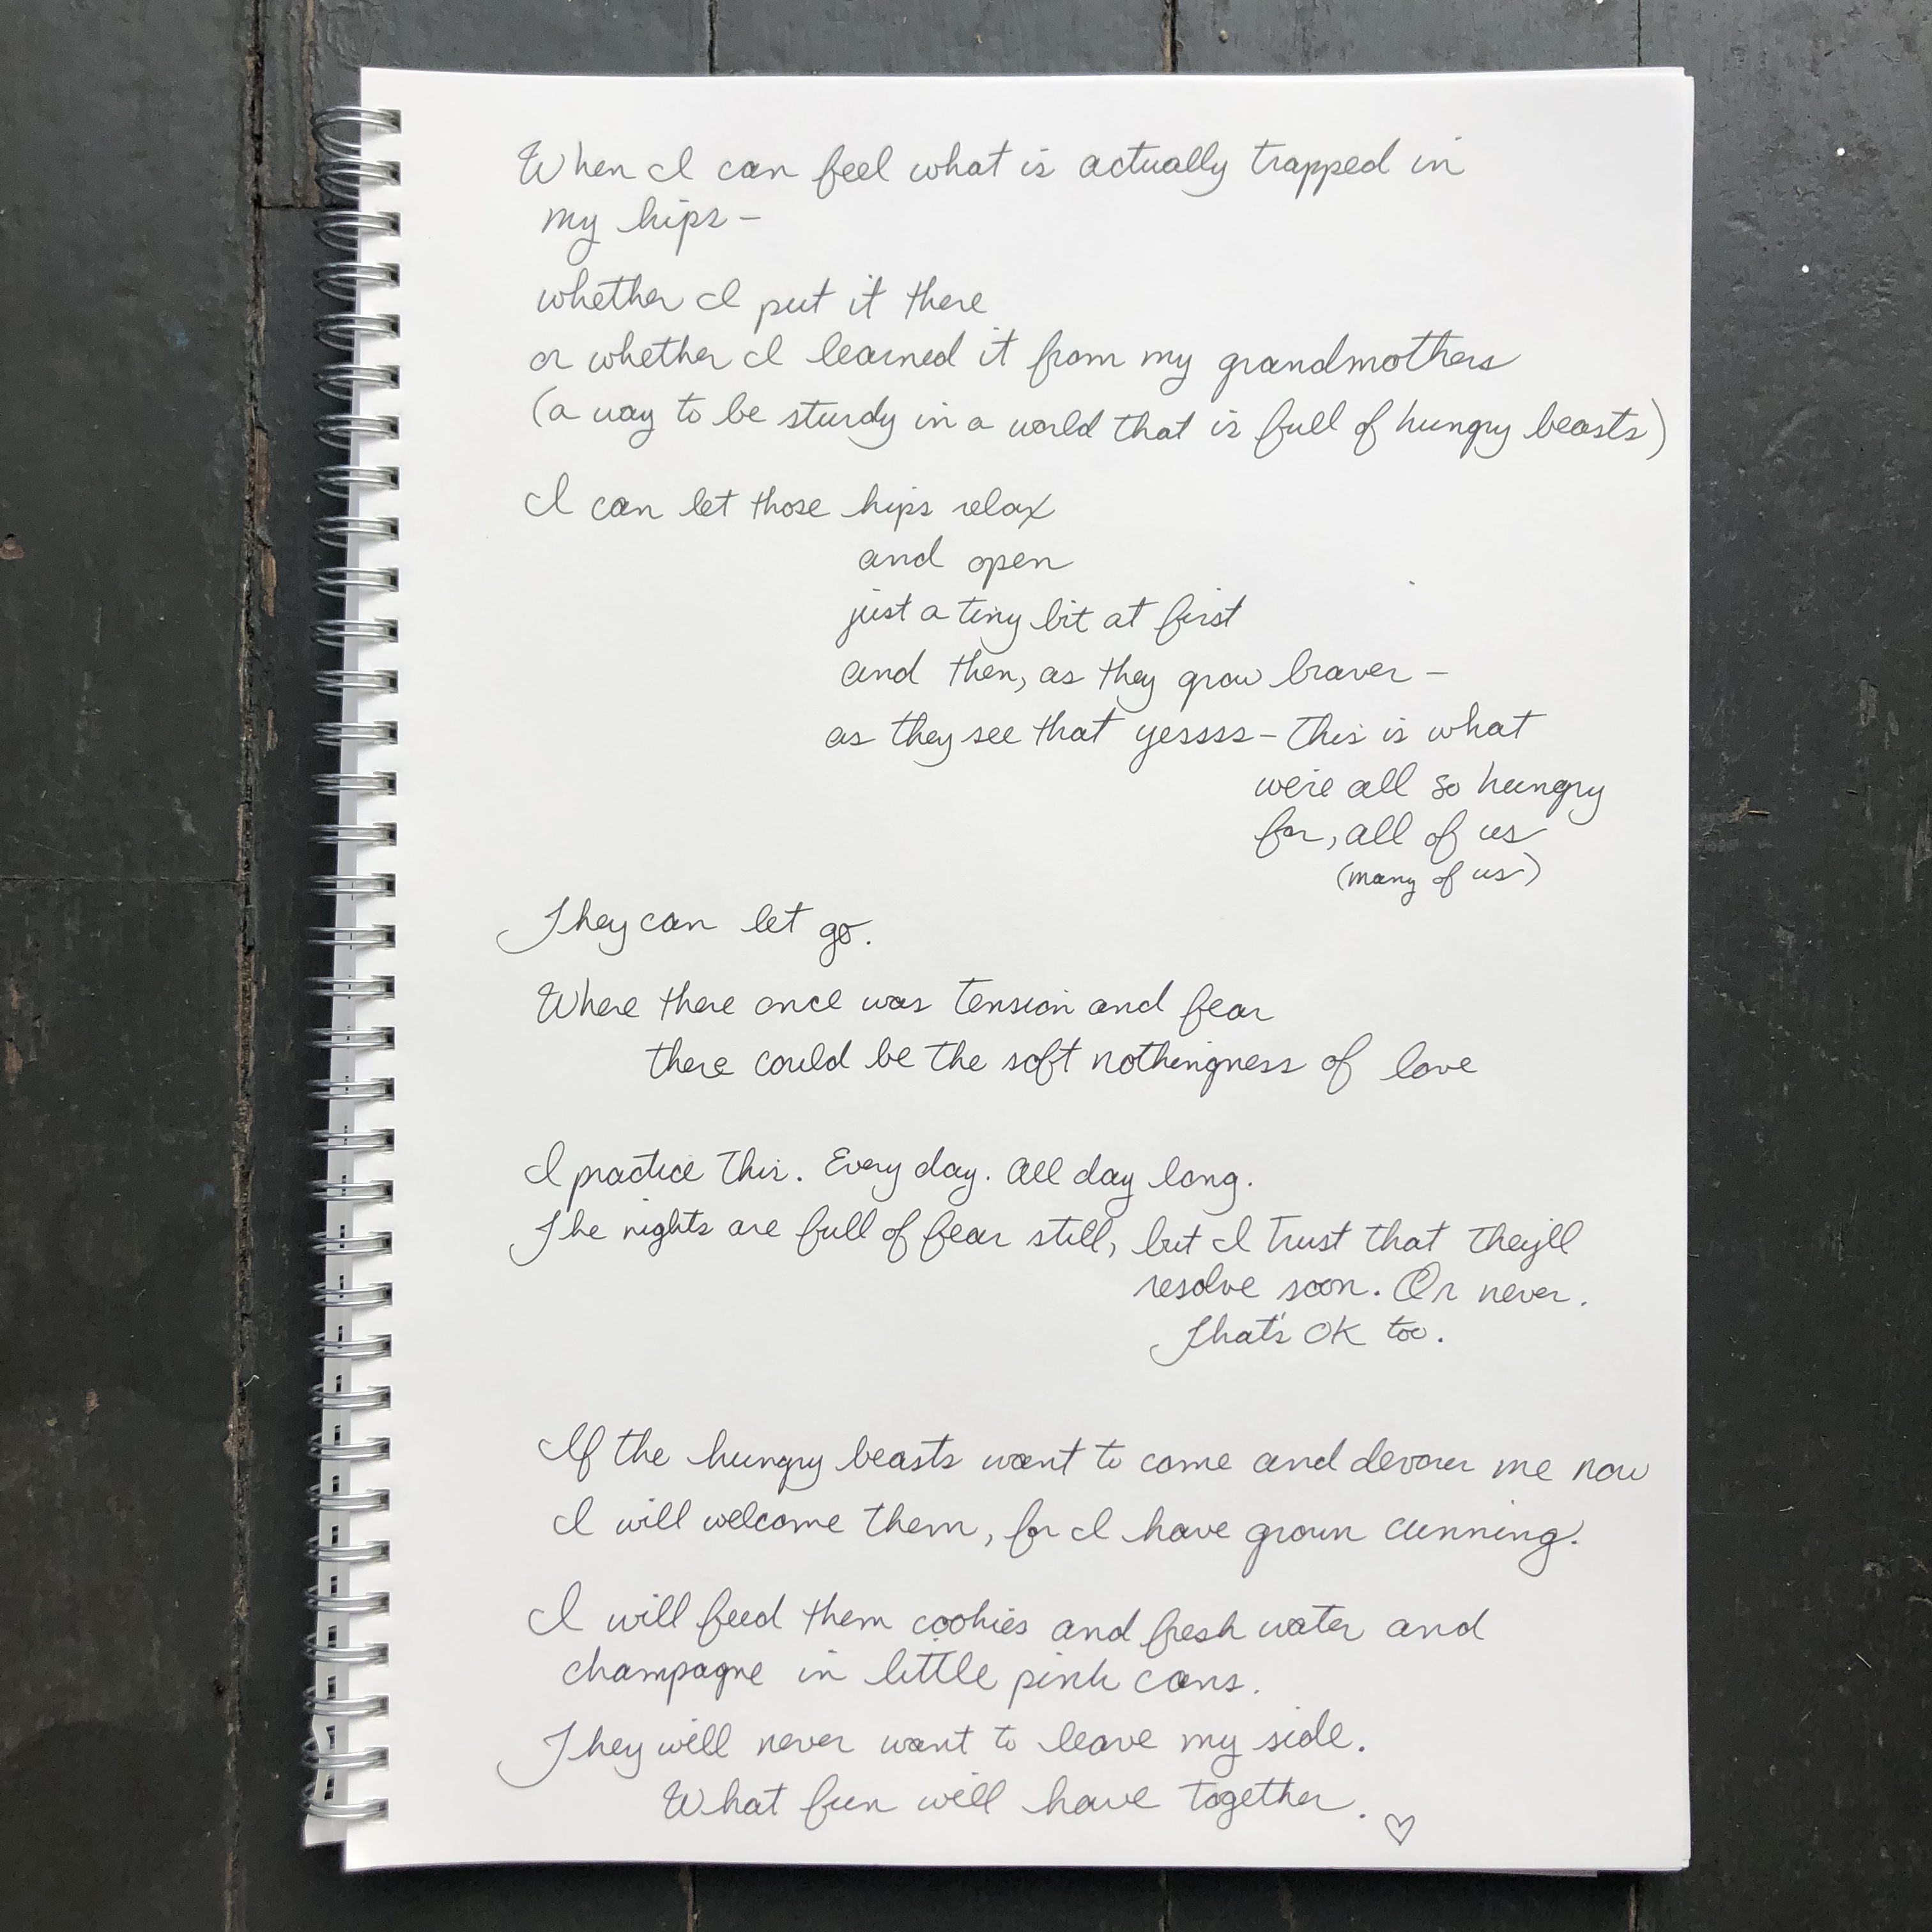 When I can feel what is actually trapped in
my hips –
whether I put it there
or whether I learned it from my grandmothers
(a way to be sturdy in a world that is full of hungry beasts)
I can let those hips relax
and open
just a tiny bit at first
and then, as they grow braver –
as they see that yessss – this is what
we're all so hungry
for, all of us
(many of us)
They can let go.
Where there once was tension and fear
there could be the soft nothingness of love
I practice this. Every day. All day long.
The nights are full of fear still, but I trust that they'll
resolve soon. Or never.
That's OK too.
If the hungry beasts want to come and devour me now
I will welcome them, for I have grown cunning.
I will feed them cookies and fresh water and
champagne in little pink cans.
They will never want to leave my side.
What fun will have together. ♡